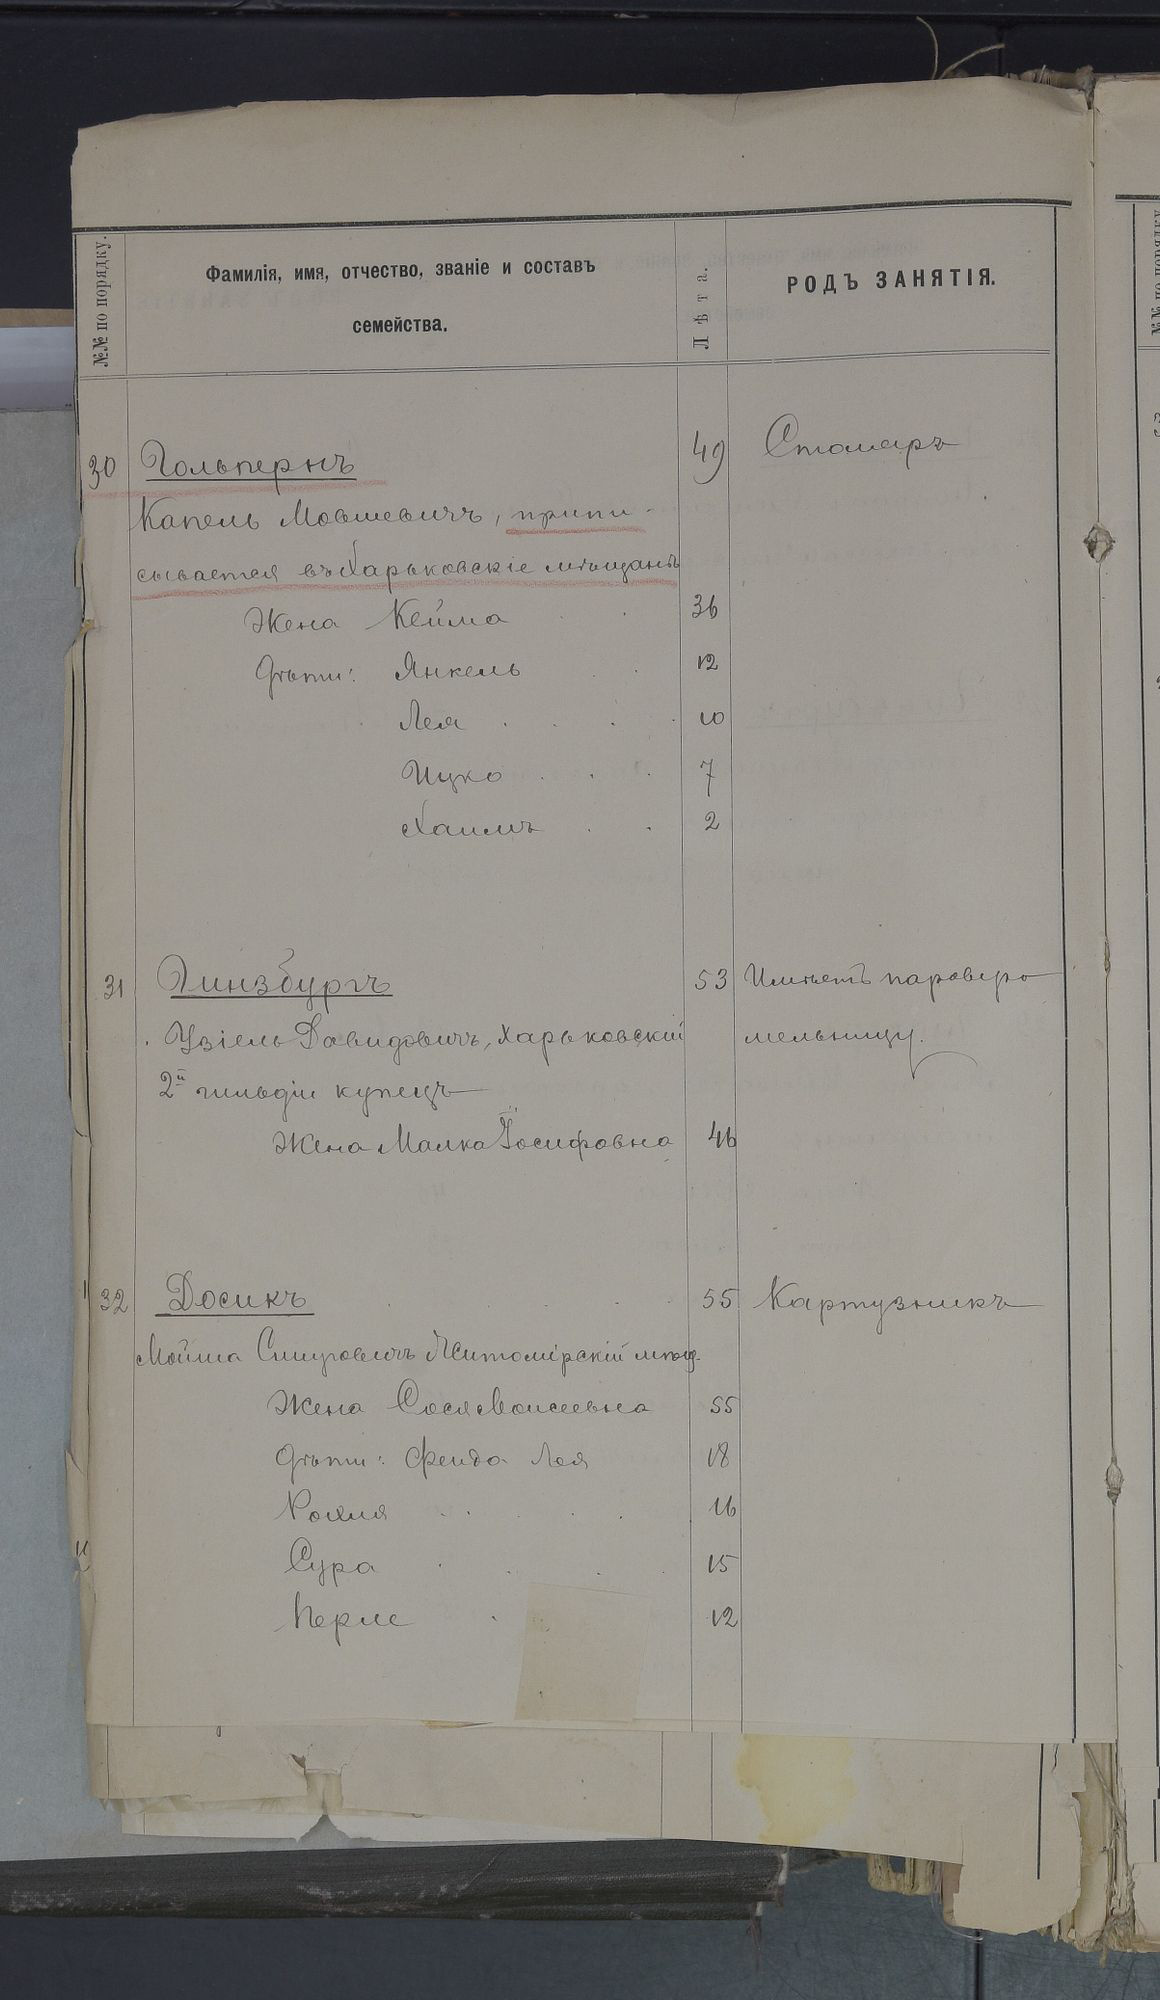 №№ по порядку.
Фамилія, имя, отчество, званіе и составъ
семейства.
Лѣта.
РОДЪ ЗАНЯТІЯ.
30 Гольпернъ 49 Столяръ
Капель Мовшевичъ, припи-
сывается въ Харьковскіе мѣщанъ
Жена Кейла 36
Дѣти: Янкель 12
Лея 10
Ицко 7
Хаимъ 2
31 Гинзбургъ 53 Имѣетъ паровую
Узіель Давидовичъ, Харьковскій мельницу.
2й гильдіи купецъ
Жена Малка Іосифовна 46
32 Досикъ 55 Картузникъ
Мойша Житомірскій мѣщ.
Жена Сося Моисеевна 55
Дѣти: Фейда Лея 18
Рохля 16
Сура 15
Перле 12
№№ по порядку